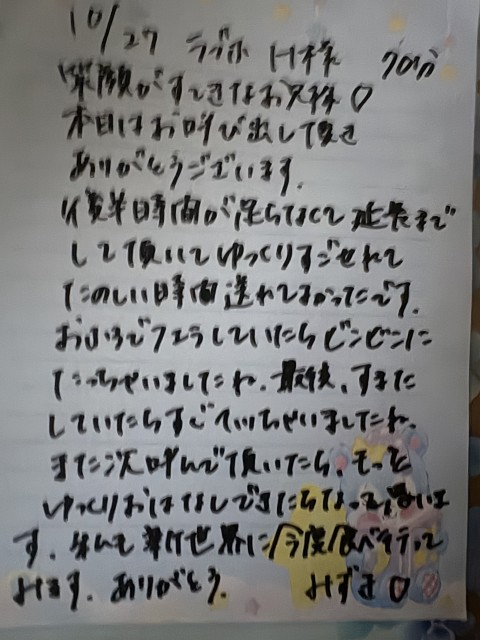 10/27 ラブホ H様 90分
笑顔がすてきなお兄様♡
本日はお呼び出して頂き
ありがとうございます。
時間が足らなくて延長まで
して頂いてゆっくりすごせれて
たのしい時間送れてよかったです。
おふろでフェラしていたらビンビンに
たっちゃいましたね。最後、すまた
していたらすごくいっちゃいましたね。
また次呼んで頂いたら、もっと
ゆっくりおはなしできたらなって思いま
す。 世界に今度食べ行って
みます。ありがとう。 みずき♡